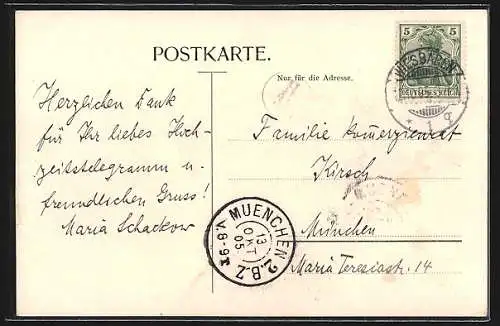 5 5
DEUTSCHES REICH
WIESBADEN
POSTKARTE.
Nur für die Adresse.
Herzlichen Dank
für Ihr liebes Hoch-
zeitstelegramm u.
freundlichen Gruss!
Maria Schackow
Familie Komerzienrat
Kirsch
München
Maria Teresiastr. 14
MUENCHEN 2.B.Z.
13
OKT
05
V. 8-9